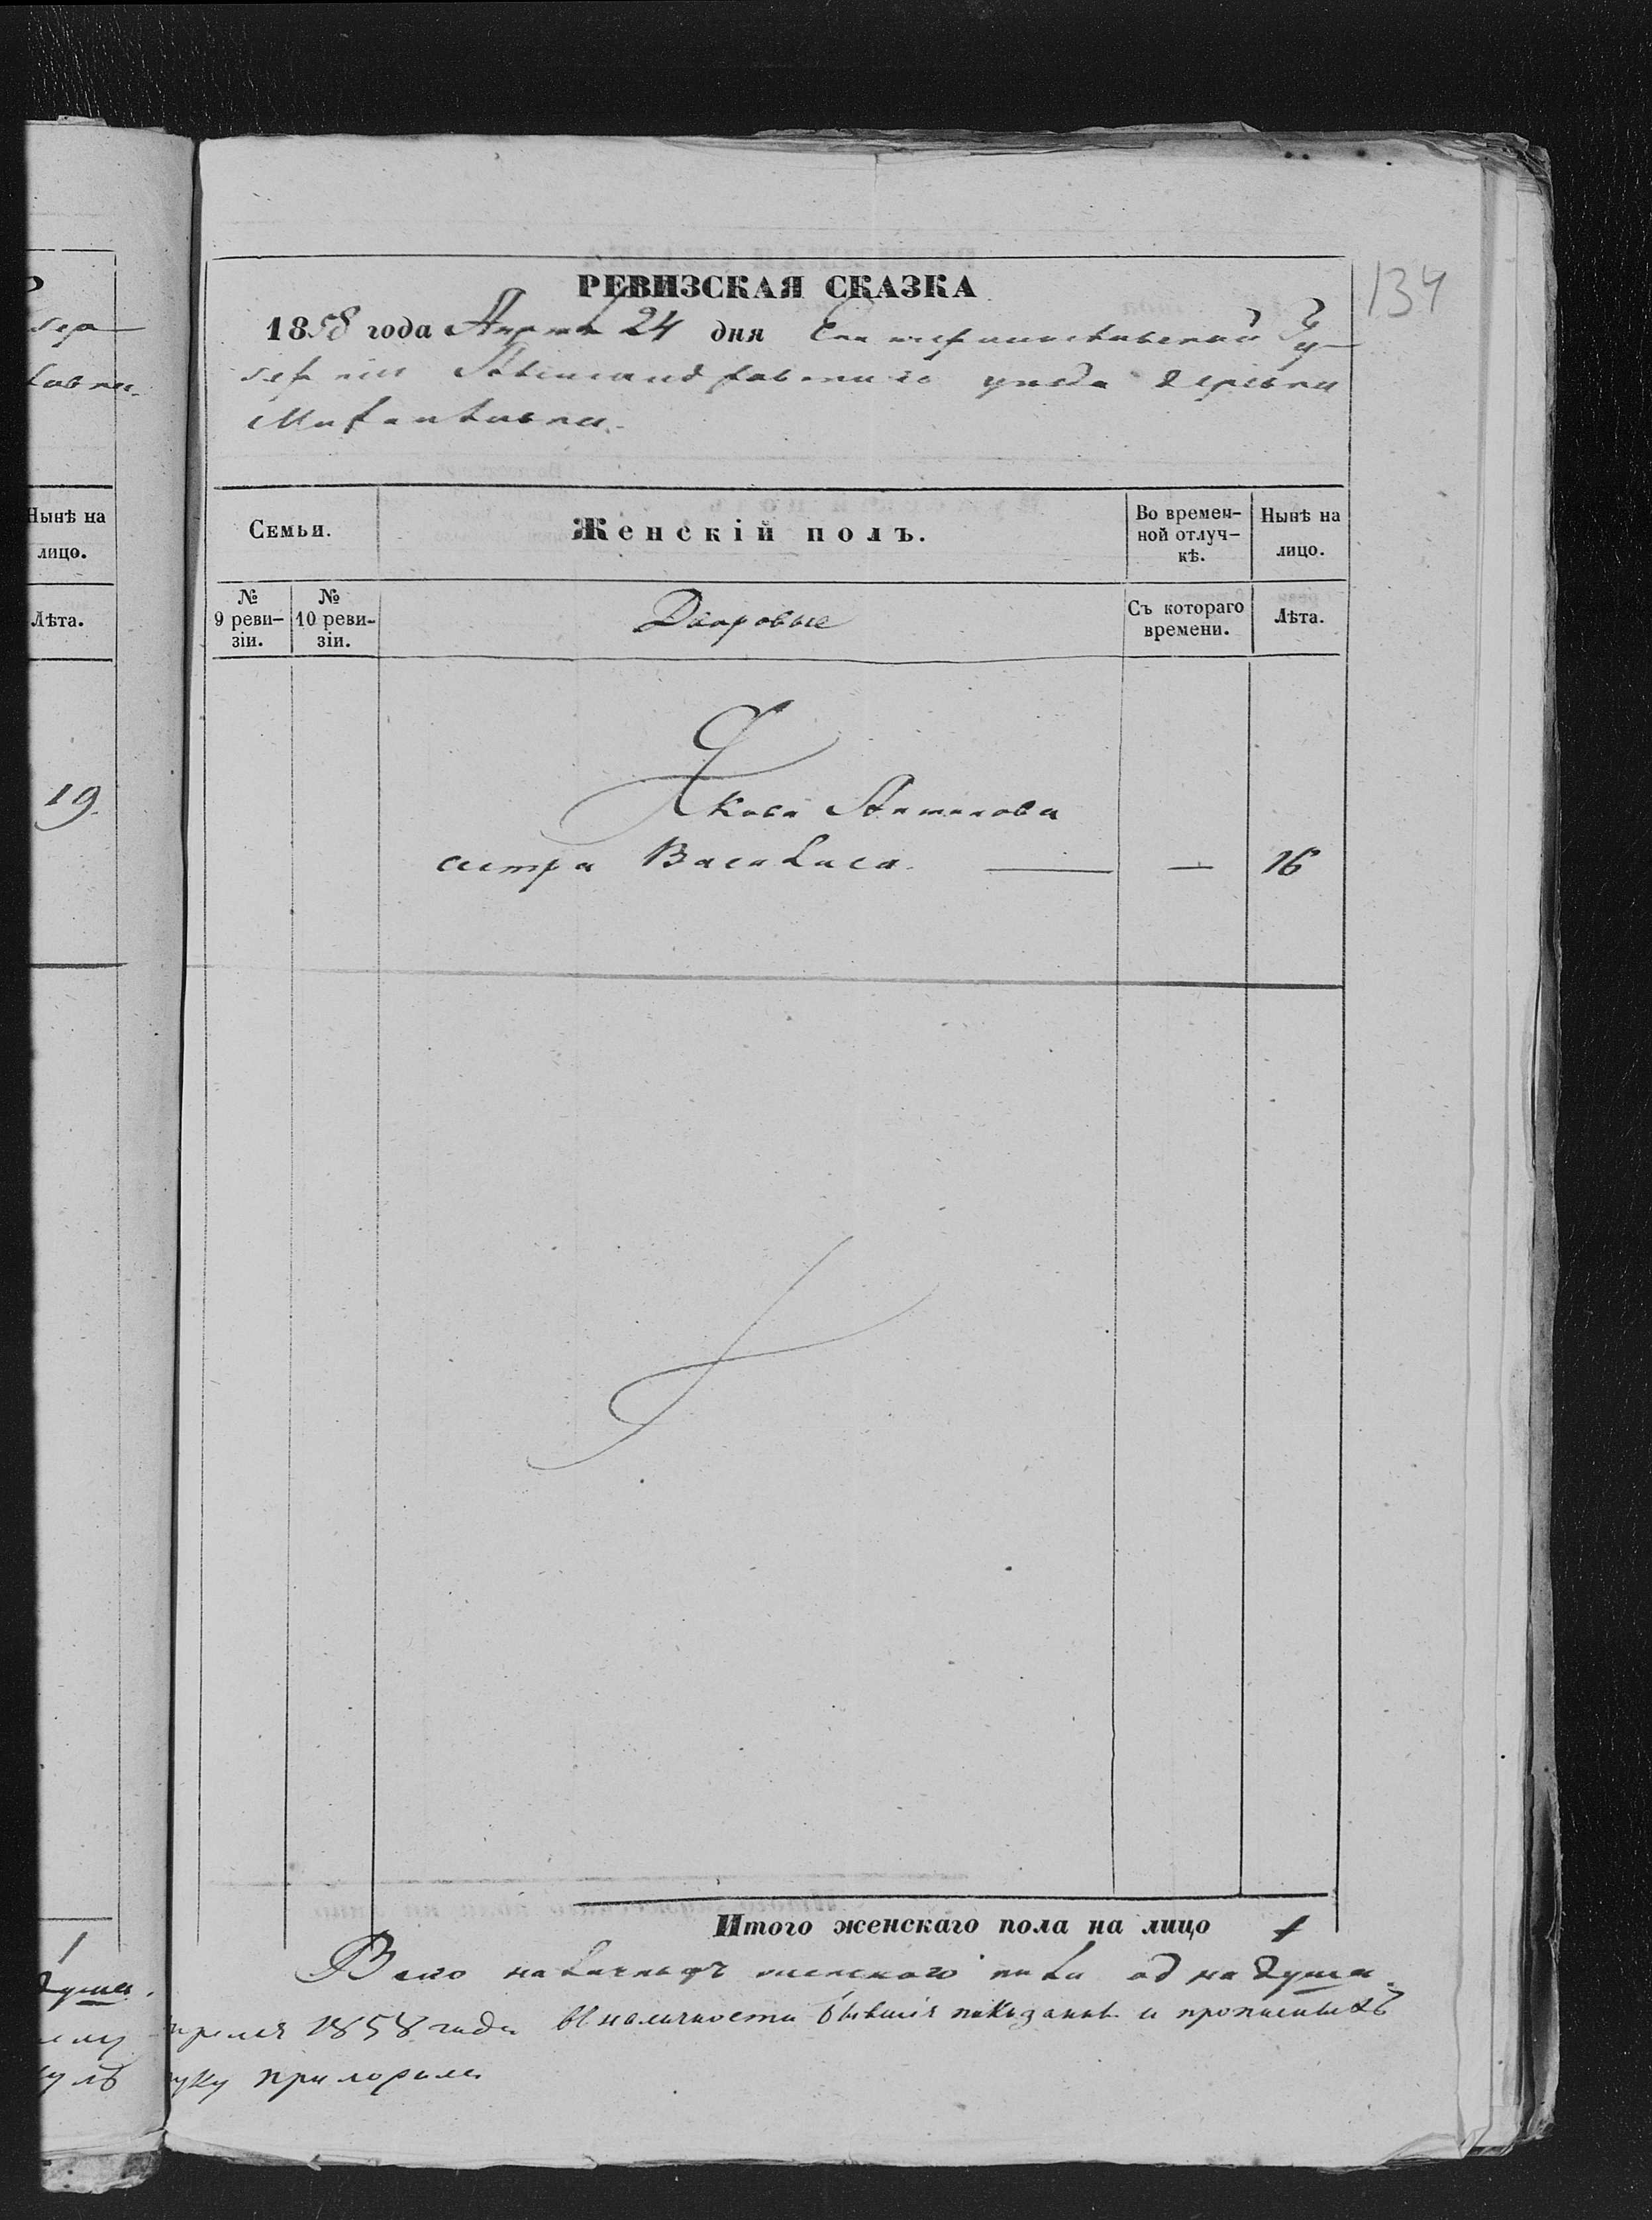 134
РЕВИЗСКАЯ СКАЗКА
1858 года Апреля 24 дня Екатеринославской Гу-
берніи Александровскаго уезда деревни
Семьи.
Женскій полъ.
Во времен-
ной отлуч-
кѣ.
Нынѣ на
лицо.
№
9 реви-
зіи.
№
10 реви-
зіи.
Дворовые
Съ котораго
времени.
Лѣта.
Якова Антонова
сестра Василиса — — 16
Итого женскаго пола на лицо 1
Всего наличныхъ женского пола одна душа.
апреля 1858 года в наличности бывшія показаны и прописныхъ
руку приложилъ
Нынѣ на
лицо.
Лѣта.
19.
1
душа.